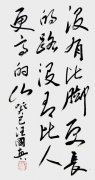 没有比脚更长
的路没有比人
更高的山 癸巳汪国真